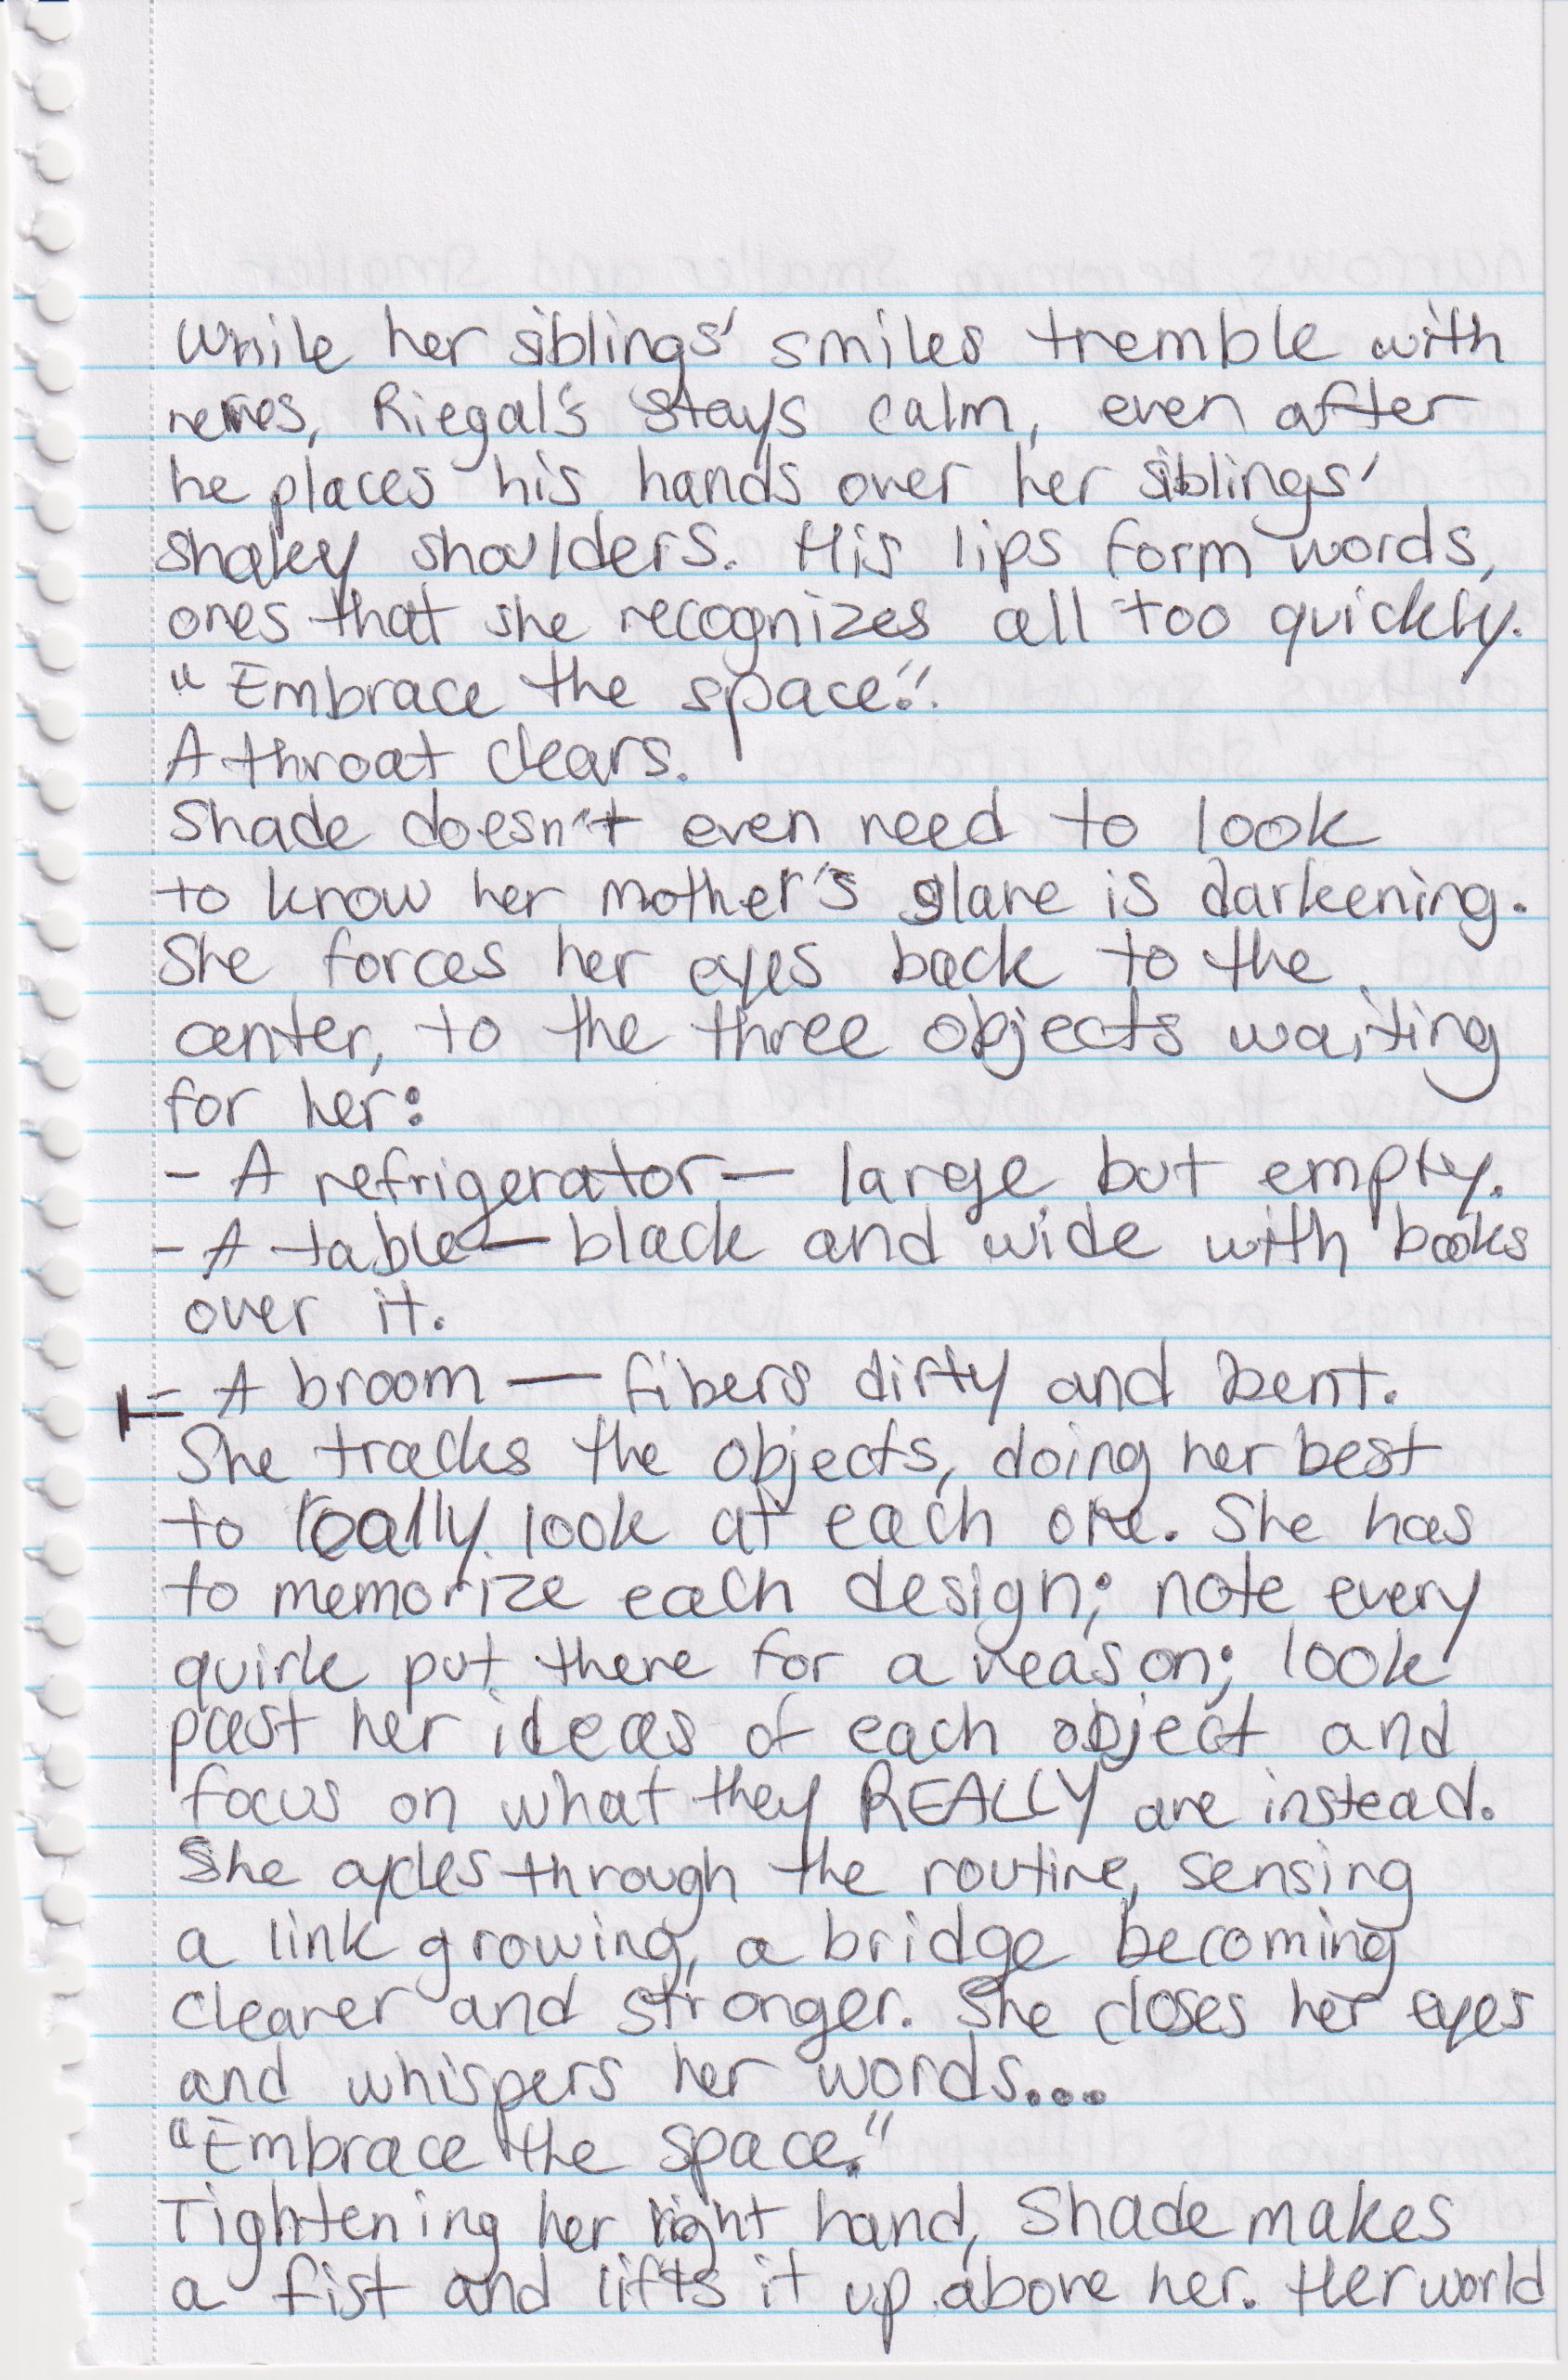 While her siblings' smiles tremble with
nerves, Riegal's stays calm, even after
he places his hands over her siblings'
shakey shoulders. His lips form words,
ones that she recognizes all too quickly.
"Embrace the space."
A throat clears.
Shade doesn't even need to look
to know her mother's glare is darkening.
She forces her eyes back to the
center, to the three objects waiting
for her:
- A refrigerator — large but empty.
- A table — black and wide with books
over it.
- A broom — fibers dirty and bent.
She tracks the objects, doing her best
to really look at each one. She has
to memorize each design; note every
quirk put there for a reason; look
past her ideas of each object and
focus on what they REALLY are instead.
She cycles through the routine, sensing
a link growing, a bridge becoming
clearer and stronger. She closes her eyes
and whispers her words...
"Embrace the space."
Tightening her right hand, Shade makes
a fist and lifts it up above her. Her world